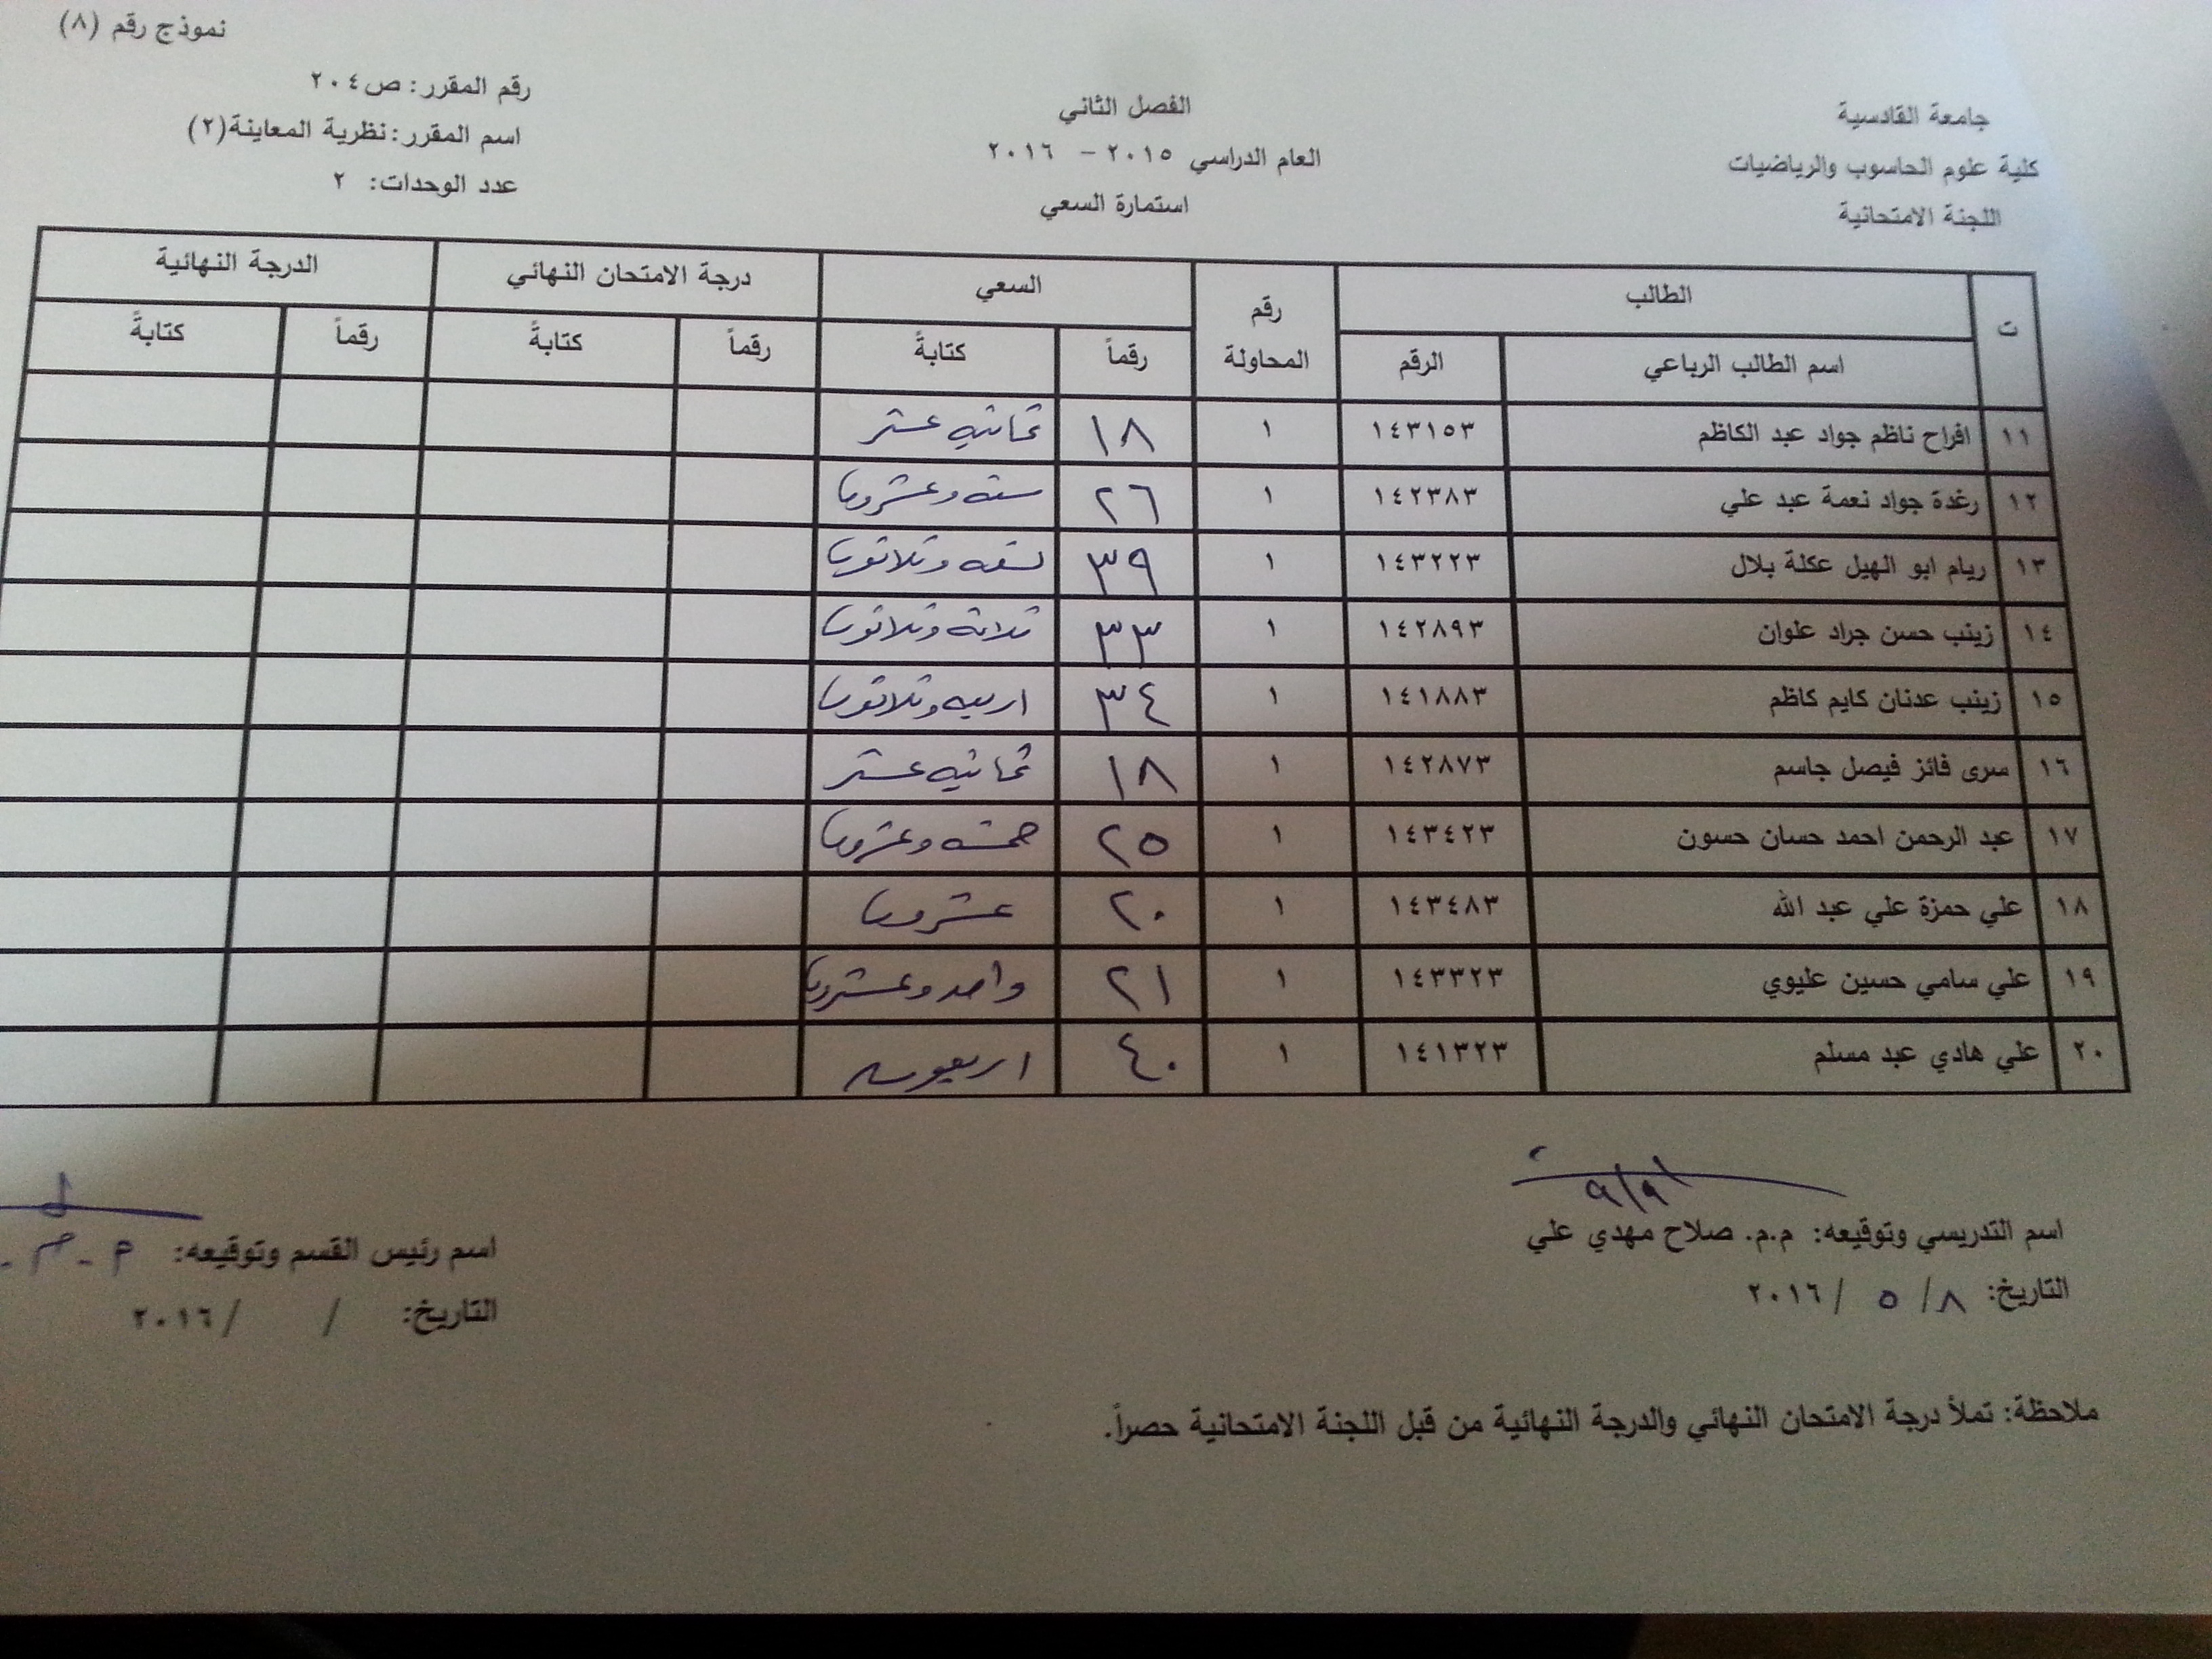 نموذج رقم (٨)
جامعة القادسية
كلية علوم الحاسوب والرياضيات
اللجنة الامتحانية
الفصل الثاني
العام الدراسي ٢٠١٥ - ٢٠١٦
استمارة السعي
رقم المقرر: ص٢٠٤
اسم المقرر: نظرية المعاينة(٢)
عدد الوحدات: ٢
ت الطالب رقم المحاولة السعي درجة الامتحان النهائي الدرجة النهائية
اسم الطالب الرباعي الرقم رقماً كتابةً رقماً كتابةً رقماً كتابةً
١١ افراح ناظم جواد عبد الكاظم ١٤٣١٥٣ ١ ١٨ ثمانيه عشر
١٢ رغدة جواد نعمة عبد علي ١٤٢٣٨٣ ١ ٢٦ سته وعشرون
١٣ ريام ابو الهيل عكلة بلال ١٤٣٢٢٣ ١ ٣٩ تسعه وثلاثون
١٤ زينب حسن جراد علوان ١٤٢٨٩٣ ١ ٣٣ ثلاثة وثلاثون
١٥ زينب عدنان كايم كاظم ١٤١٨٨٣ ١ ٣٤ اربعه وثلاثون
١٦ سرى فائز فيصل جاسم ١٤٢٨٧٣ ١ ١٨ ثمانيه عشر
١٧ عبد الرحمن احمد حسان حسون ١٤٣٤٢٣ ١ ٢٥ خمسه وعشرون
١٨ علي حمزة علي عبد الله ١٤٣٤٨٣ ١ ٢٠ عشرون
١٩ علي سامي حسين عليوي ١٤٣٣٢٣ ١ ٢١ واحد وعشرون
٢٠ علي هادي عبد مسلم ١٤١٣٢٣ ١ ٤٠ اربعون
اسم التدريسي وتوقيعه: م.م. صلاح مهدي علي
التاريخ: ٨/ ٥ / ٢٠١٦
اسم رئيس القسم وتوقيعه:
التاريخ: / / ٢٠١٦
ملاحظة: تملأ درجة الامتحان النهائي والدرجة النهائية من قبل اللجنة الامتحانية حصراً.